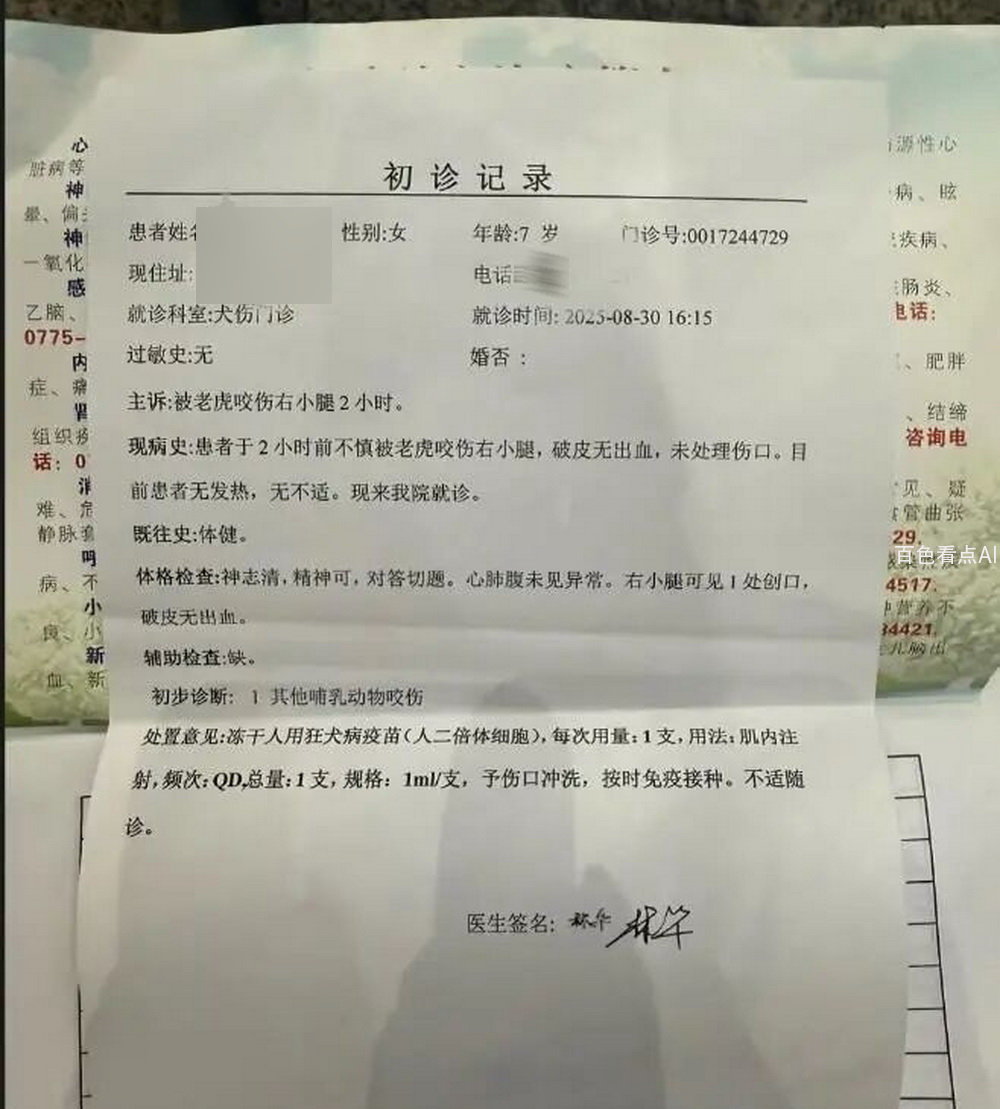 初诊记录
患者姓名 性别:女 年龄:7 岁 门诊号:0017244729
现住址: 电话
就诊科室:犬伤门诊 就诊时间: 2025-08-30 16:15
过敏史:无 婚否 :
主诉:被老虎咬伤右小腿2小时。
现病史:患者于2小时前不慎被老虎咬伤右小腿，破皮无出血，未处理伤口。目
前患者无发热，无不适。现来我院就诊。
既往史:体健。
体格检查:神志清，精神可，对答切题。心肺腹未见异常。右小腿可见1处创口，
破皮无出血。
辅助检查:缺。
初步诊断: 1 其他哺乳动物咬伤
处置意见:冻干人用狂犬病疫苗(人二倍体细胞),每次用量:1支,用法:肌内注
射,频次:QD,总量:1支,规格: 1ml/支，予伤口冲洗，按时免疫接种。不适随
诊。
医生签名: 林华
心
脏病等
神
晕、偏
神
一氧化
感
乙脑、
0775-
内
症、
组织
话: 0
难、
静脉
病、不
小
良、小
新
血、新
源性心
病、眩
疾病、
肠炎、
电话:
、肥胖
、结缔
咨询电
见、疑
管曲张
29,
4517,
营养不
34421,
百色看点AI